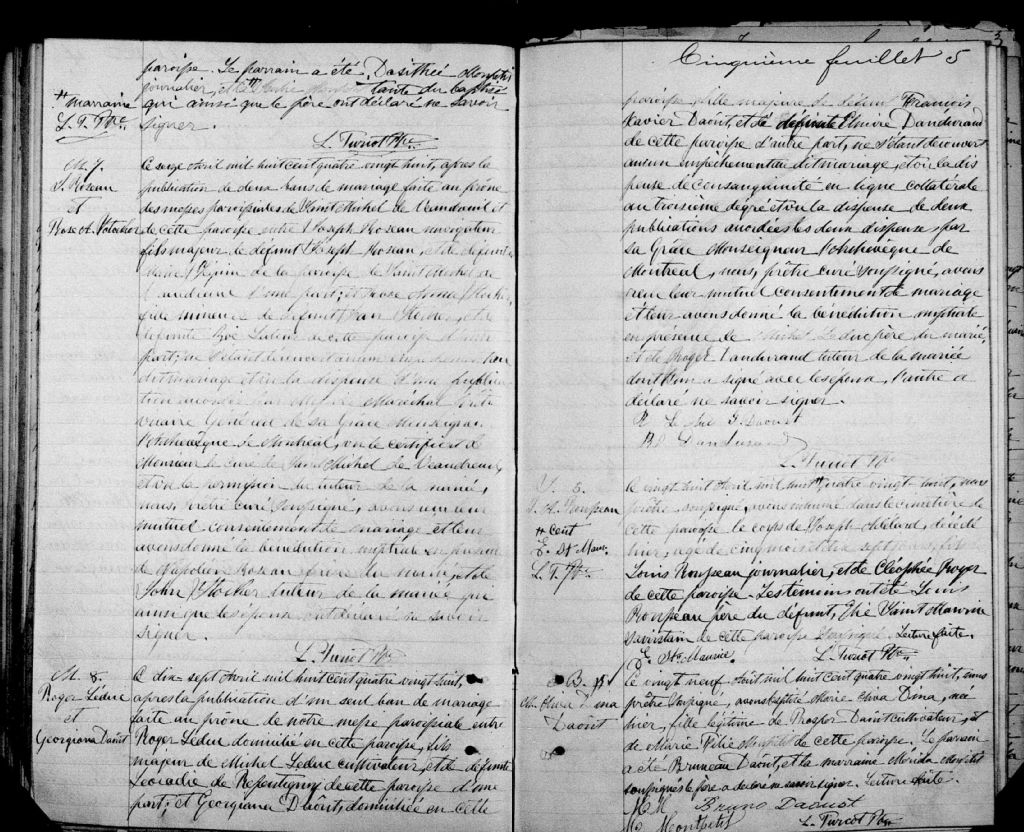 paroisse. Le parrain a été, Dasithée
journalier, et la tante du baptisé
qui ainsi que le père ont déclaré ne savoir
signer.
# marraine
L. T. Ptre
L. Turcot Ptre
M. 7.
J. Rozeau
et
Rose A.
Le seize Avril mil huit cent quatre vingt huit, après la
publication de deux bans de mariage faite au prône
des messes paroissiales de Saint Michel de Vaudreuil et
de cette paroisse entre Joseph Rozeau navigateur
fils majeur de défunt Joseph Rozeau, et de défunte
de la paroisse de Saint Michel de
Vaudreuil d'une part; et Rose
fille mineure de défunt et de
défunte Zoé de cette paroisse d'autre
part; ne s'étant découvert aucun empêchement au
dit mariage et vu la dispense d'une publica
tion accordée par Maréchal
Général de Sa Grâce Monseigneur
l'Archevêque de Montréal, vu le certificat de
Monsieur le curé de Saint Michel de Vaudreuil,
et vu la permission du tuteur de la mariée,
nous, prêtre curé soussigné, avons reçu leur
mutuel consentement de mariage et leur
avons donné la bénédiction nuptiale en présence
de Napoléon Rozeau frère du marié, et de
John tuteur de la mariée qui
ainsi que les époux ont déclaré ne savoir
signer.
L. Turcot Ptre
M. 8.
Roger Leduc
et
Georgiana Daoût
Le dix-sept Avril mil huit cent quatre vingt huit,
après la publication d'un seul ban de mariage
faite au prône de notre messe paroissiale entre
Roger Leduc domicilié en cette paroisse, fils
majeur de Michel Leduc cultivateur, et de défunte
Léocadie de Repentigny de cette paroisse d'une
part; et Georgiana Daoût, domiciliée en cette
Cinquième feuillet 5
paroisse, fille majeure de défunt François
Xavier Daoût, et de défunte Elmire Dandurand
de cette paroisse d'autre part, ne s'étant découvert
aucun empêchement au dit mariage, et vu la dis
pense de consanguinité en ligne collatérale
au troisième dégré et vu la dispense de deux
publications accordées les deux dispenses par
Sa Grâce Monseigneur l'Archevêque de
Montréal, nous, prêtre curé soussigné, avons
reçu leur mutuel consentement de mariage
et leur avons donné la bénédiction nuptiale
en présence de Michel Leduc père du marié,
et de Roger Dandurand tuteur de la mariée
dont l'un a signé avec les époux, l'autre a
déclaré ne savoir signer.
R. Le duc G. Daoust
Dandurand
L. Turcot Ptre
S. 5.
J. A. Rouppeau
# cent
E. St Maur.
L. T. Ptre
Le vingt huit Avril mil huit # quatre vingt huit, nous
prêtre, soussigné, avons inhumé dans le cimetière de
cette paroisse le corps de Joseph Adélard, décédé
hier, agé de cinq mois et dix sept jours, fils
Louis Rouppeau journalier, et de Cléophée Royer
de cette paroisse. Les témoins ont été Louis
Rouppeau père du défunt, Saint Maurice
sacristain de cette paroisse soussigné. Lecture faite.
E. St Maurice. L. Turcot Ptre
B.
Daoût
Le vingt neuf Avril mil huit cent quatre vingt huit, nous
prêtre soussigné, avons baptisé Marie Dina, née
hier, fille légitime de Prosper Daoût cultivateur, et
de Marie de cette paroisse. Le parrain
a été Bruneau Daoût, et la marraine Mérida
soussignés le père a déclaré ne savoir signer. Lecture faite.
Bruno Daoust
L. Turcot Ptre